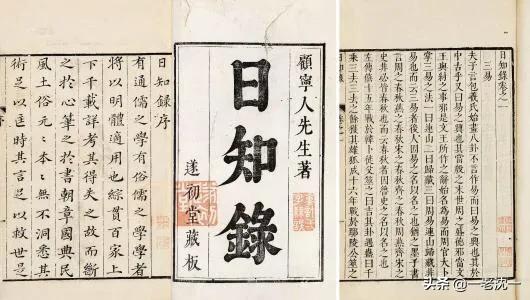 日知錄序
有通儒之學有俗儒之學學者
將以明體適用也綜貫百家上
下千載詳考其得失之故而斷
之於心筆之於書朝章國典民
風土俗元〻本〻無不洞悉其
術足以匡時其言足以救世是
顧寧人先生著
日知錄
遂初堂藏板
日知錄卷之一
三易
夫子言包羲氏始畫八卦不言作易而曰易之興也其於
中古乎又曰易之興也其當殷之末世周之盛德邪當文
王與紂之事邪是文王所作之辭始名為易而周官大卜
掌三易之法一曰連山二曰歸藏三曰周易連山歸藏非
易也而云三易者後人因易之名以名之也猶之墨子書
言周之春秋燕之春秋宋之春秋齊之春秋周燕齊宋之
史非必皆春秋也而云春秋者因魯史之名以名之也
左傳僖十五年戰於韓卜徒父筮之曰吉其卦遇蠱曰千
乘三去三去之餘獲其雄狐成十六年戰於鄢陵公筮之
头条 @一老沈一